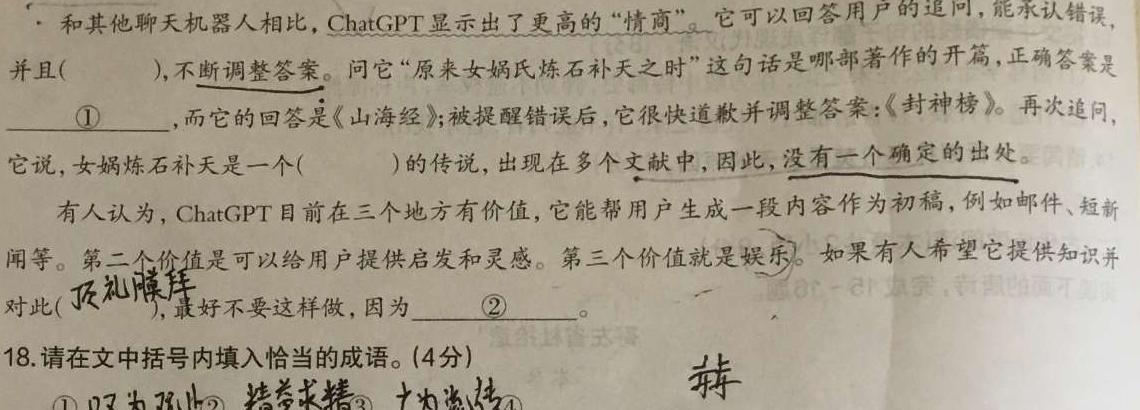 和其他聊天机器人相比，ChatGPT显示出了更高的“情商”。它可以回答用户的追问，能承认错误，
并且(　　　)，不断调整答案。问它“原来女娲氏炼石补天之时”这句话是哪部著作的开篇，正确答案是
①，而它的回答是《山海经》；被提醒错误后，它很快道歉并调整答案：《封神榜》。再次追问，
它说，女娲炼石补天是一个(　　　)的传说，出现在多个文献中，因此，没有一个确定的出处。
有人认为，ChatGPT目前在三个地方有价值，它能帮用户生成一段内容作为初稿，例如邮件、短新
闻等。第二个价值是可以给用户提供启发和灵感。第三个价值就是娱乐。如果有人希望它提供知识并
对此(顶礼膜拜)，最好不要这样做，因为②。
18.请在文中括号内填入恰当的成语。(4分)
① ② 精益求精 ③ ④